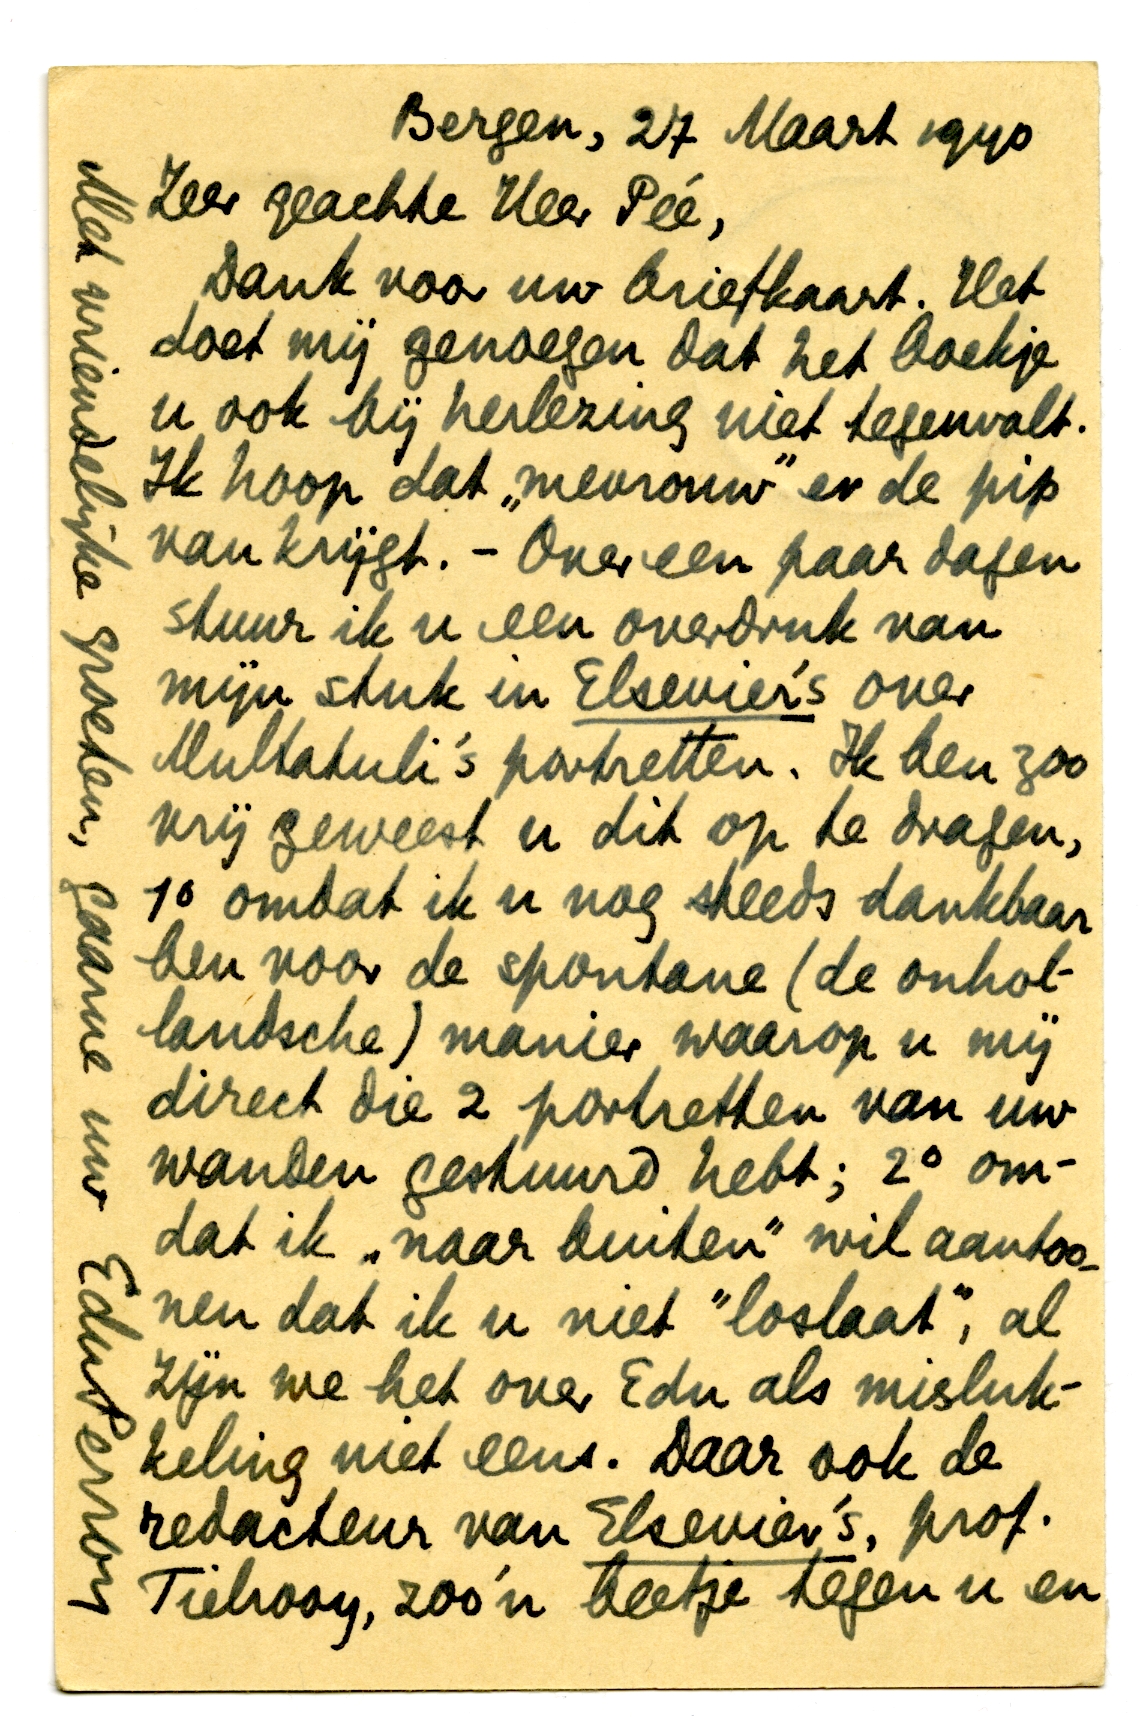 Bergen, 27 Maart 1940
Zeer geachte Heer Péé,
Dank voor uw briefkaart. Het
doet mij genoegen dat het boekje
u ook bij herlezing niet tegenvalt.
Ik hoop dat „mevrouw” er de pip
van krijgt. – Over een paar dagen
stuur ik u een overdruk van
mijn stuk in Elsevier's over
Multatuli's portretten. Ik ben zoo
vrij geweest u dit op te dragen,
1° omdat ik u nog steeds dankbaar
ben voor de spontane (de onhol-
landsche) manier waarop u mij
direct die 2 portretten van uw
wanden gestuurd hebt; 2° om-
dat ik „naar buiten” wil aantoo-
nen dat ik u niet "loslaat", al
zijn we het over Edu als misluk-
keling niet eens. Daar ook de
redacteur van Elsevier's, prof.
Tielrooy, zoo'n beetje tegen u en
Met vriendelijke groeten, gaarne uw EduPerron